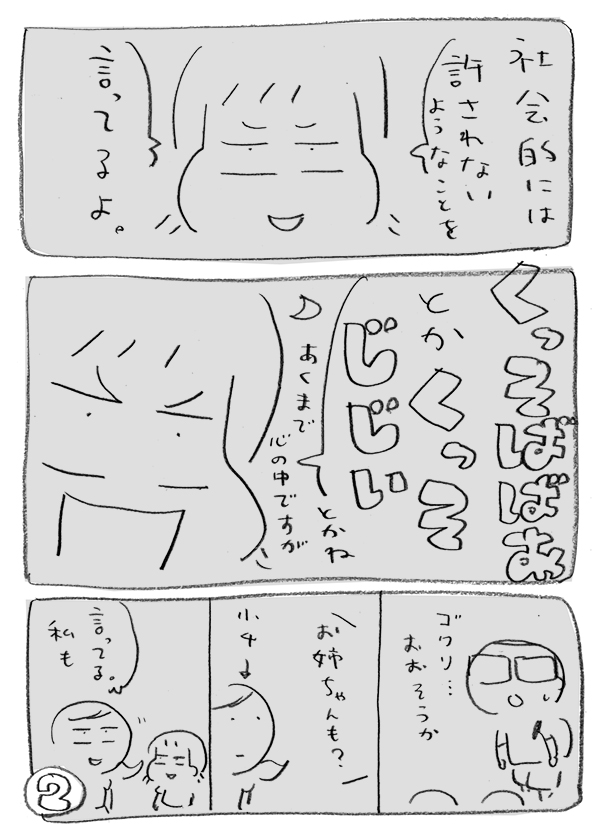 社会的には
許されない
ようなことを
言ってるよ。
くっそばばぁ
とか
くっそ
じじい
とかね
あくまで
心の中ですが
ゴクリ…
おおそうか
お姉ちゃんも？
小4
言ってる。
私も
2